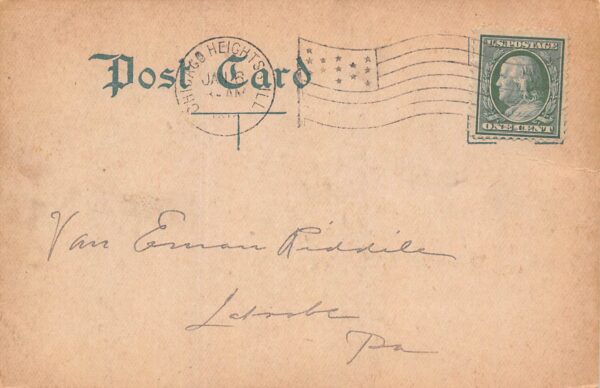 Post Card
CHICAGO HEIGHTS, ILL.
JAN 6
U.S. POSTAGE
ONE CENT
Van Eman Riddile
Latrobe
Pa